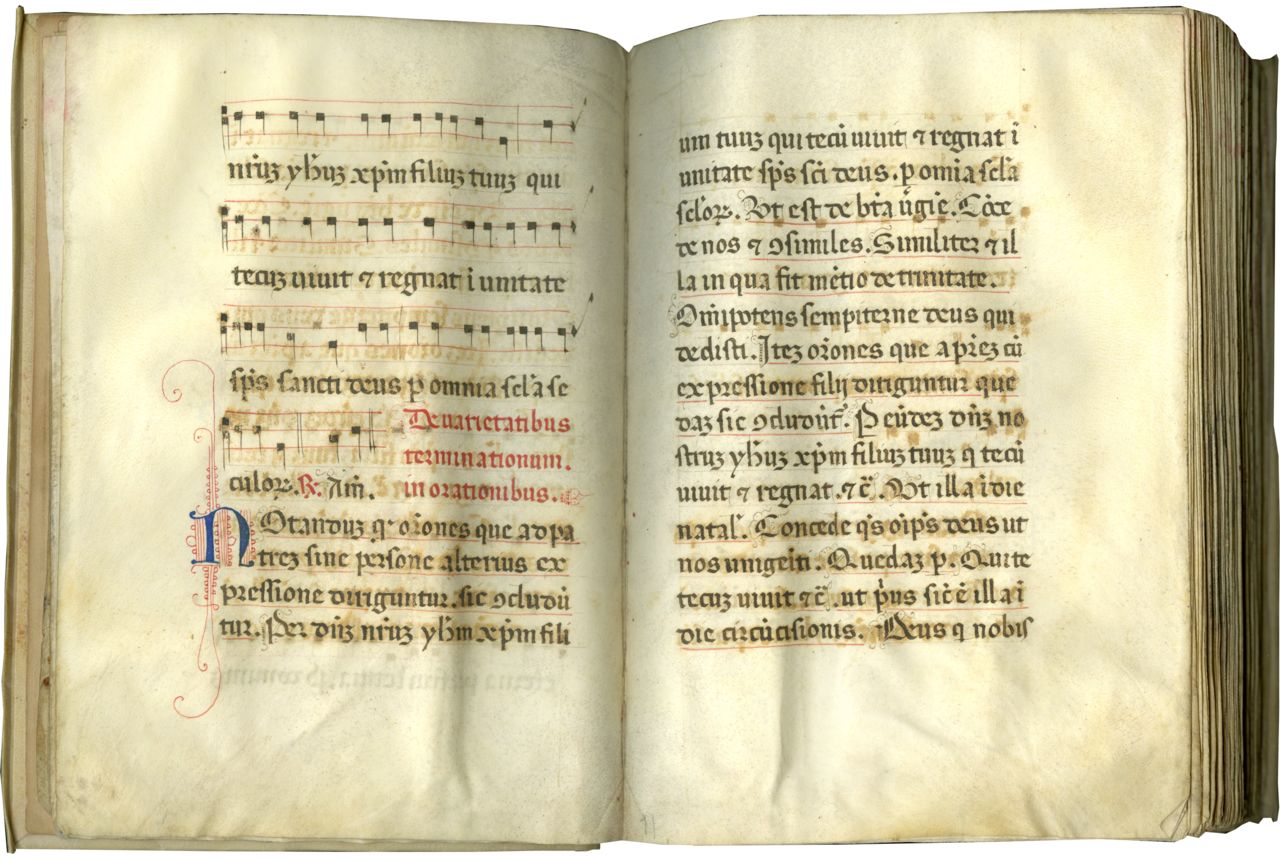 nrīuꝫ yħuꝫ xp̄m filiuꝫ tuuꝫ qui
tecuꝫ uiuit ⁊ regnat ī unitate
sp̄s sancti deus ꝑ omnia scl̄a se
culoꝝ. ℟. Am̄.
De uarietatibus
terminationum.
in orationibus.
NOtanduꝫ qꝫ or̄ones que ad pa
treꝫ sine persone alterius ex
pressione diriguntur. sic ꝯcludūt
tur. Per dn̄ꝫ nrīuꝫ yħm xp̄m fili
um tuuꝫ qui tecū uiuit ⁊ regnat ī
unitate sp̄s sc̄i deus. ꝑ omīa scl̄a
scl̄oꝝ. Vt est de btā ūgīe. Cōce
de nos ⁊ ꝯsimiles. Similiter ⁊ il
la in qua fit mētio de trinitate.
Om̄ipotens sempiterne deus qui
dedisti. Iteꝫ or̄ones que a pr̄eꝫ cū
expressione filij diriguntur que
daꝫ sic ꝯcludūt̄. Per eūdeꝫ dn̄ꝫ no
struꝫ yħuꝫ xp̄m filiuꝫ tuuꝫ q tecū
uiuit ⁊ regnat. ⁊ c̄. Vt illa ī die
natal̄. Concede q̄s oīp̄s deus ut
nos unigeīti. Quedaꝫ ꝑ. Qui te
tecuꝫ uiuit ⁊ c̄. ut p̄us sic̄ ē illa ī
die circūcisionis. Deus q nobis